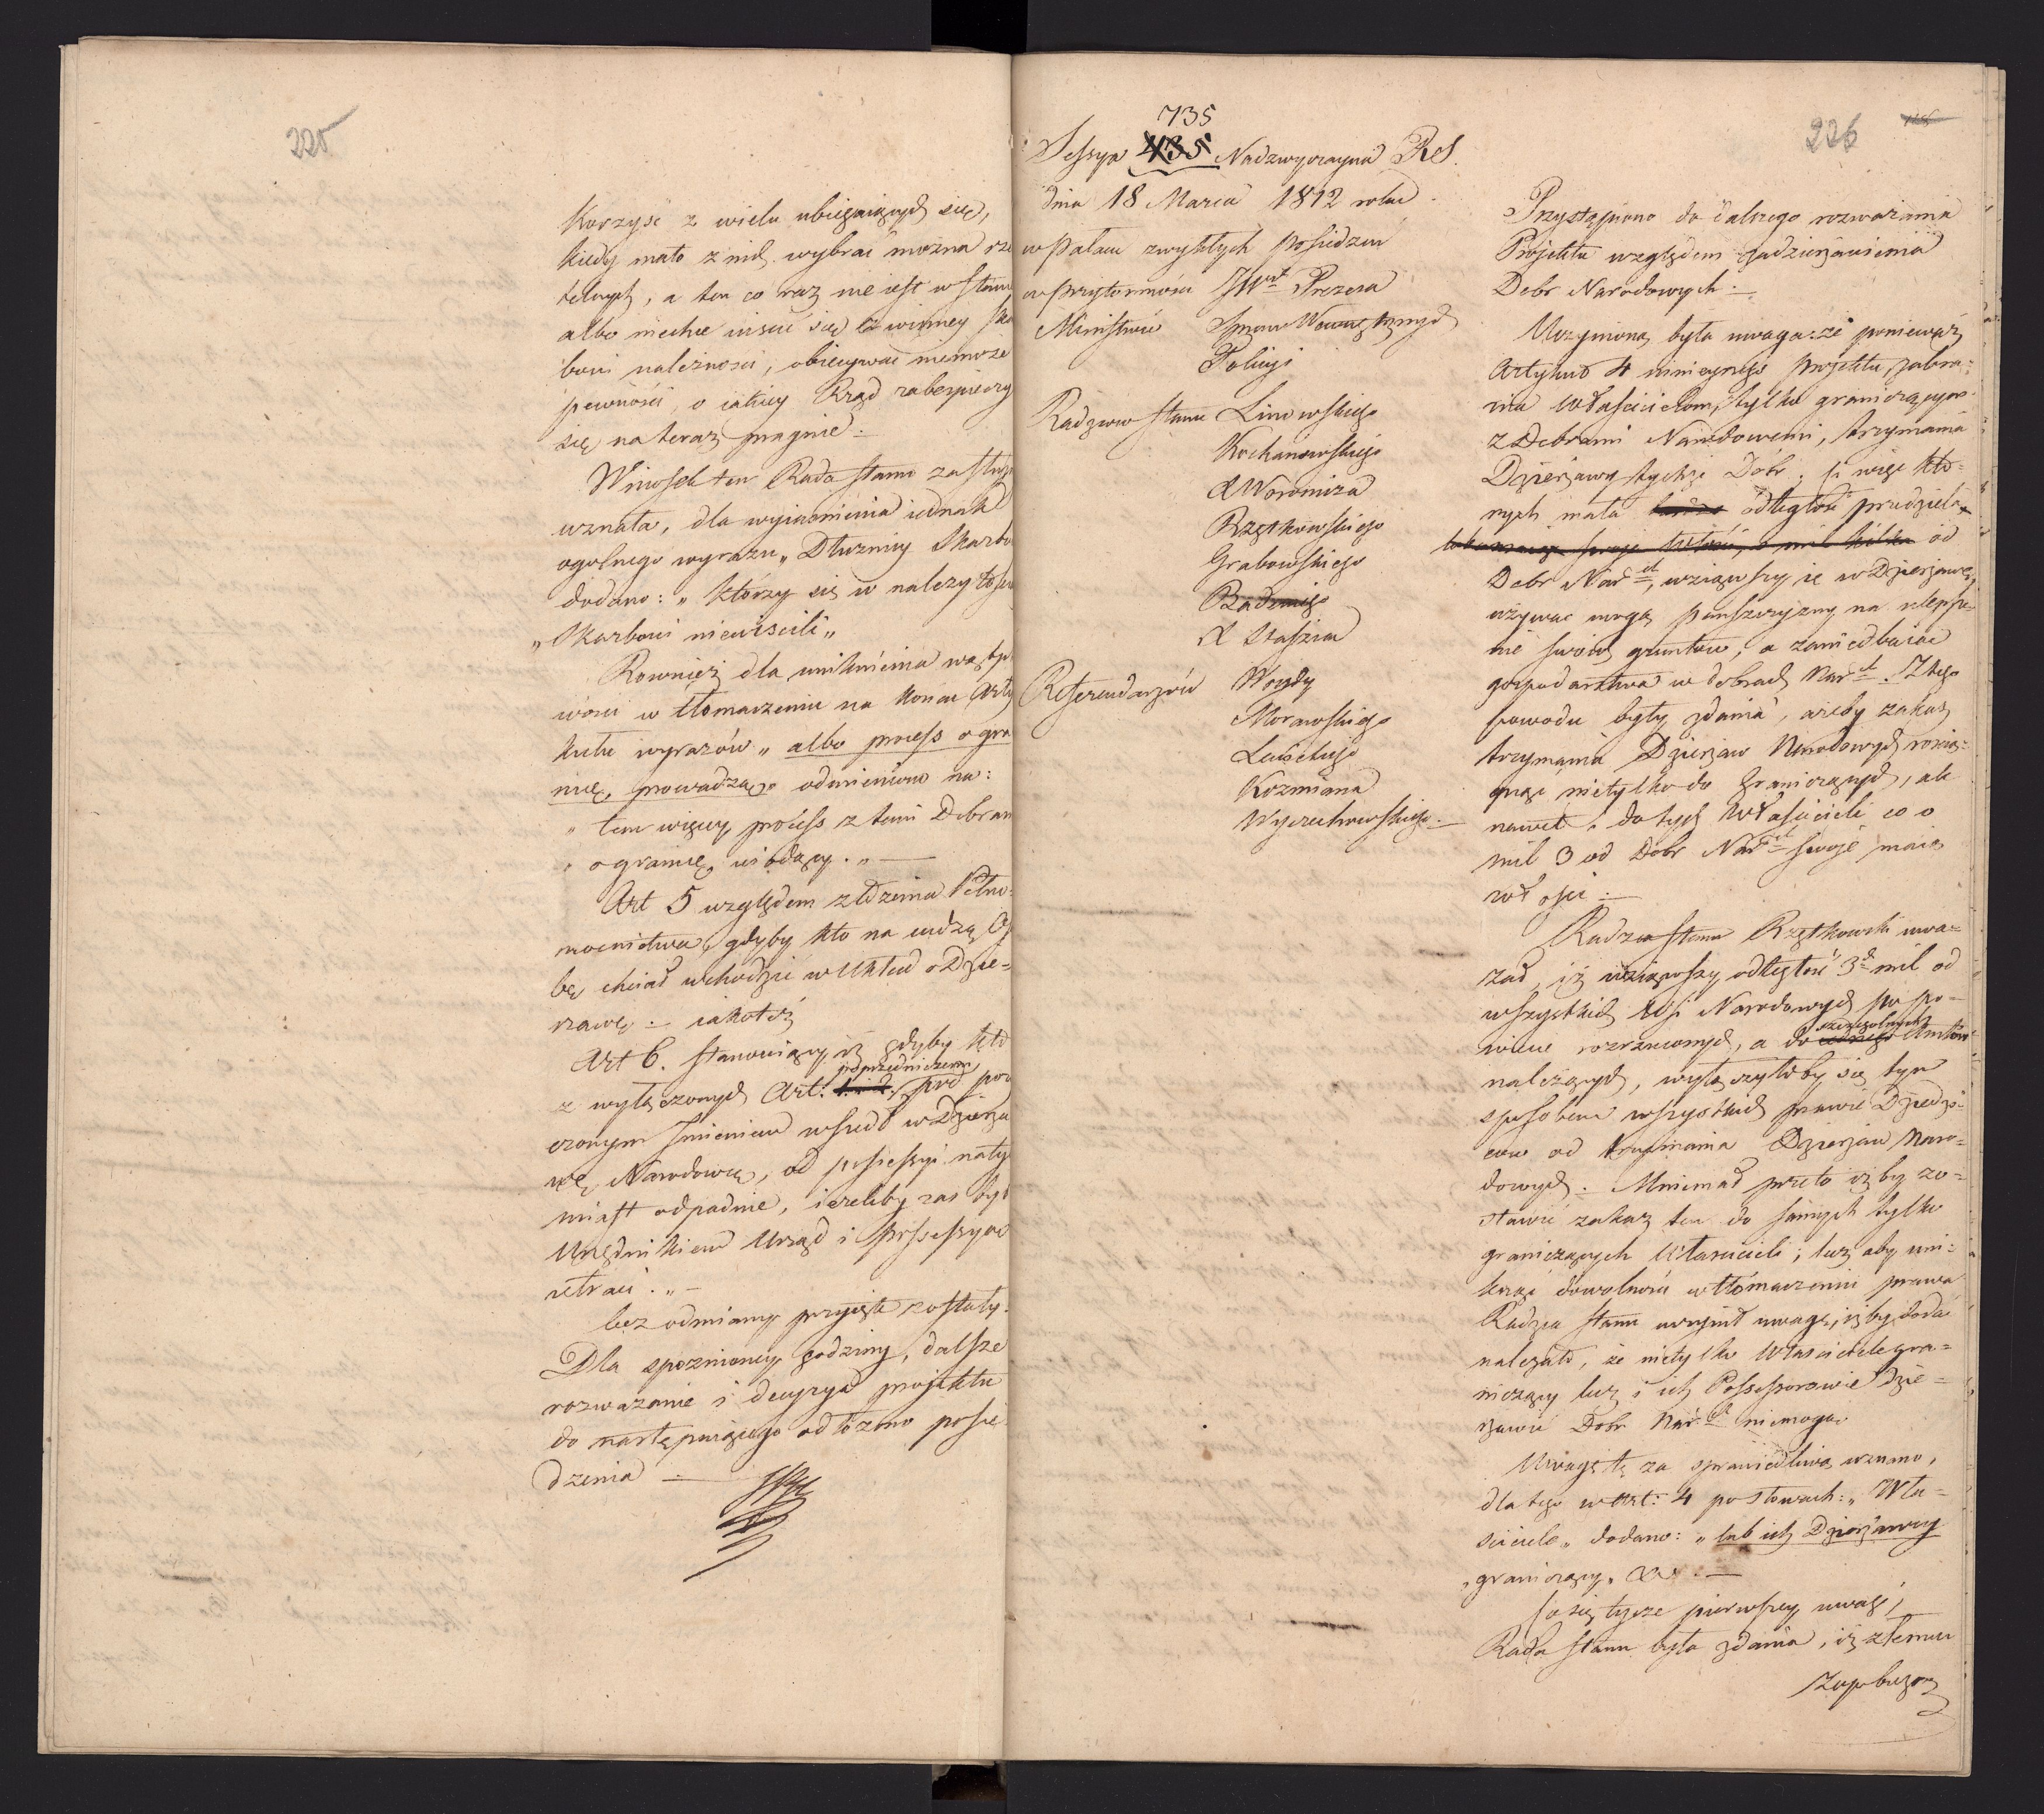 225
Korzyść z wielu ubiegaiących się,
kiedy mało z nich wybrać można rze
telnych, a ten co raz nie iest w stanie
albo niechce uiścić się z winney Ska
bowi należności, obiecywać niemoże
pewności, o iakiey Rząd zabezpieczy
się na teraz pragnie.
Wniosek ten Rada Stanu za słuszn
uznała, dla wyiaśnienia iednak
ogolnego wyrazu „Dłużnicy Skarbo
dodano: „którzy się w należytości
„Skarbowi nieuiścili„
Rownież dla uniknienia wątpl
iwości w tłomaczeniu na końcu Arty
kułu wyrazów „albo process o gra
nicę prowadzący odmieniono na:
„tem więcey process z temi Dobram
„o granicę wiodący.„
Art 5 względem złożenia Pełno-
mocnictwa, gdyby kto na cudzą Oso
bę chciał wchodzić w Układ o Dzier-
rzawę – iakoteż
Art 6. stanowiący iż gdyby kto
poprzedniczem
z wyłączonych Art: pod poży
czonym Imieniem wszedł w Dzierża
wę Narodową, od possessyi naty
miast odpadnie, ieżeliby zas był
Urzędnikiem Urząd i possessyą
utraci.„
bez odmiany przyięte zostały.
Dla spoznioney godziny, dalsze
rozważanie i decyzyą projektu
do następuiącego odłożono posie
dzenia

735
Sessya 435 Nadzwyczayna RS.
dnia 18 Marca 1812 roku
w Pałacu zwykłych Posiedzeń
w przytomności JW Prezesa
Ministrów Spraw Wewnętrznych
Policyi
Radzców Stanu Linowskiego
Kochanowskiego
X Woronicza
Rzętkowskiego
Grabowskiego
X Staszica
Referendarzów Woydy
Morawskiego
Łubieńskiego
Kozmiana
Wyczechowskiego.

226
Przystąpiono do dalszego rozważania
Projektu względem zadzierżawienia
Dobr Narodowych.
Uczyniona była uwaga: że ponieważ
Artykuł 4 ninieyszego projektu zabra-
nia Właścicielom, tylko graniczącym
z Dobrami Narodowemi, trzymania
Dzierżawy tychże Dóbr; ci więc któ-
rych mała odległość przedziela
od
Dobr Nar, wziąwszy ie w Dzierżawę,
używać mogą Pańszczyzny na ulepsze-
nie swoich gruntów, a zaniedbać
gospodarstwa w dobrach Nar. Z tego
powodu były zdania, ażeby zakaz
trzymania Dzierżaw Narodowych rozcią-
gnąć nietylko do graniczących, ale
nawet i do tych Właścicieli co o
mil 3 od Dobr Nar swoje maią
włości.
Radzca Stanu Rzętkowski uwa-
żał, iż wziąwszy odległość 3 mil od
wszystkich Wsi Narodowych po Po-
szczególnych
wiecie rozrzuconych, a do Amtów
należących, wyłączyłoby się tym
sposobem wszystkich prawie Dziedzi-
ców od trzymania Dzierżaw Naro-
dowych. Mniemał przeto iż by zo-
stawić zakaz ten do samych tylko
graniczących Właścicieli; lecz aby uni-
knąć dowolności w tłómaczeniu prawa
Radzca Stanu uczynił uwagę, iżby dodać
należało, że nietylko Właściciele gra-
niczący lecz i ich Possessorowie Dzie-
rżawić Dobr Nar niemogą.
Uwagę tę za sprawiedliwą uznano,
dla tego w Art: 4 po słowach: „Wła-
ściciele„ dodano: „lub ich Dzierżawcy
„graniczący„ &c.
Co się tycze pierwszey uwagi,
Rada Stanu była zdania, iż złemu
zapobiegą